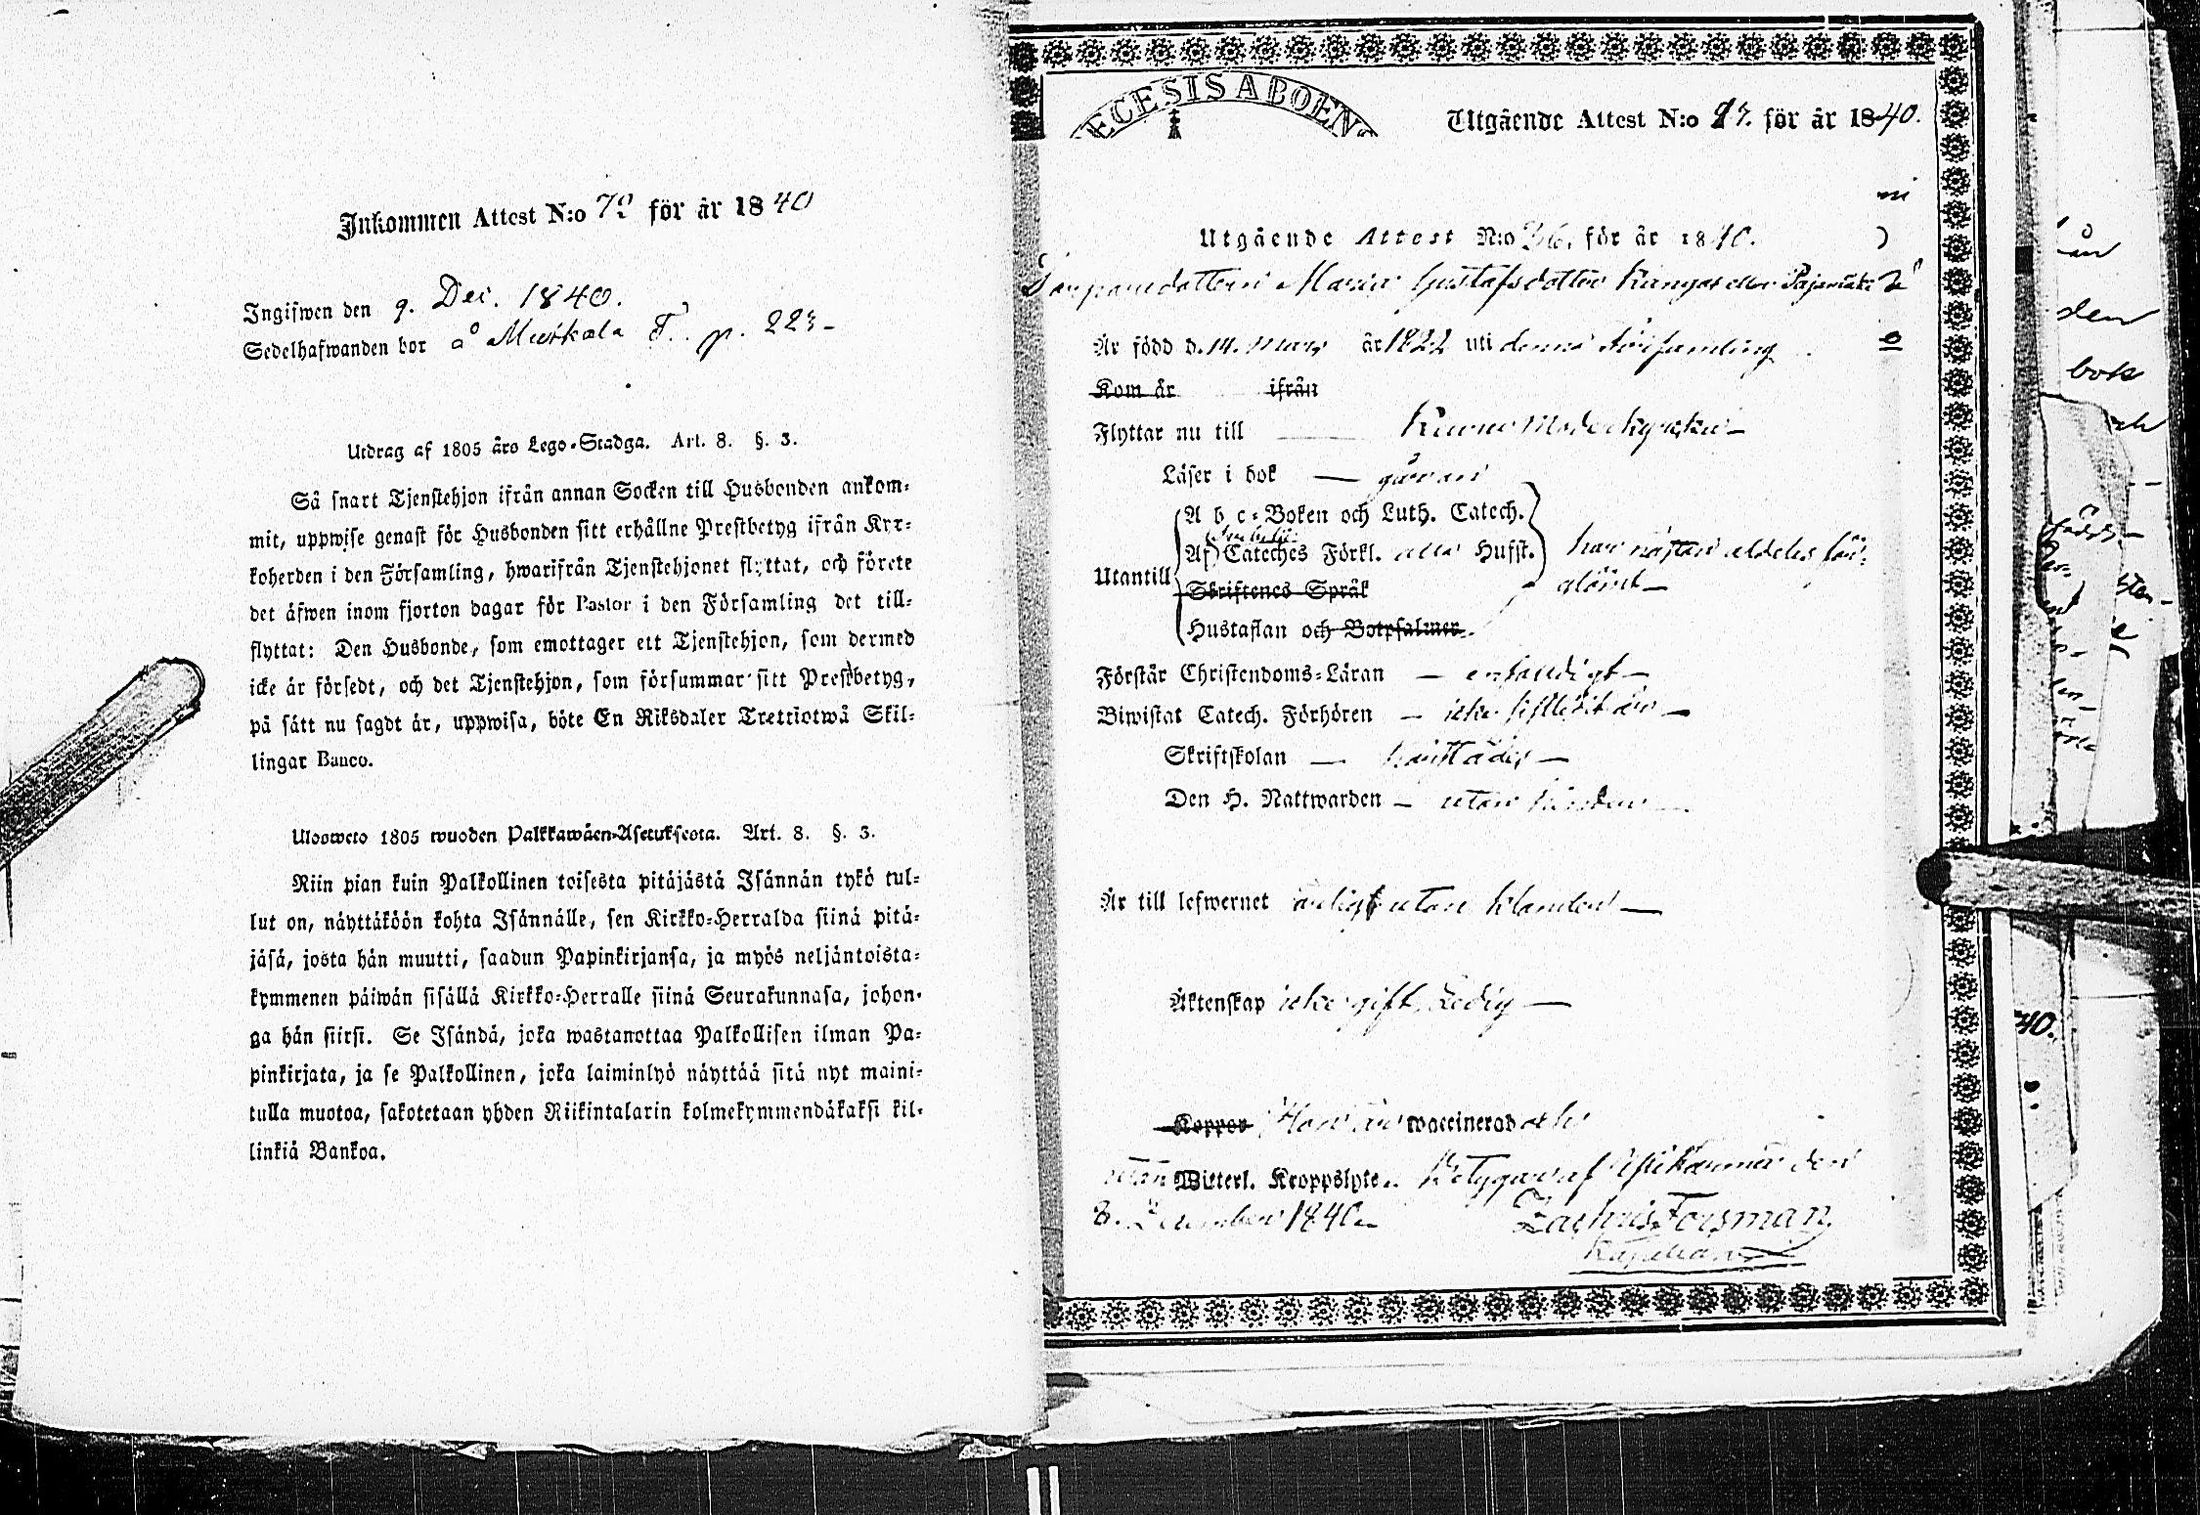 Inkommen Attest N:o 72 för år 1840
Ingifwen den 9. Dec. 1840.
Sedelhafwanden bor å Muskala T. p. 223-
Utdrag af 1805 års Lego-Stadga. Art. 8. §. 3.
Så snart Tjenstehjon ifrån annan Socken till Husbonden ankom-
mit, uppwise genast för Husbonden sitt erhållne Prestbetyg ifrån Kyr-
koherden i den Församling, hwarifrån Tjenstehjonet flyttat, och förete
det äfwen inom fjorton dagar för Pastor i den Församling det till-
flyttat: Den Husbonde, som emottager ett Tjenstehjon, som dermed
icke är försedt, och det Tjenstehjon, som försummar sitt Prestbetyg,
på sätt nu sagdt är, uppwisa, böte En Riksdaler Trettiotwå Skil-
lingar Banco.
Ulosweto 1805 wuoden Palkkawäen-Asetuksesta. Art. 8. §. 3.
Niin pian kuin Palkollinen toisesta pitäjästä Isännän tykö tul-
lut on, näyttäköön kohta Isännälle, sen Kirkko-Herralda siinä pitä-
jäsä, josta hän muutti, saadun Papinkirjansa, ja myös neljäntoista-
kymmenen päiwän sisällä Kirkko-Herralle siinä Seurakunnasa, johon-
ga hän siirsi. Se Isändä, joka wastanottaa Palkollisen ilman Pa-
pinkirjata, ja se Palkollinen, joka laiminlyö näyttää sitä nyt maini-
tulla muotoa, sakotetaan yhden Riikintalarin kolmekymmendäkaksi kil-
linkiä Bankoa.
ECESIS ABOENS
Utgående Attest N:o 27. för år 1840.
Utgående Attest N:o 36. för år 1840.
Maria Gustafsdotter Kangas eller
Är född d. 14. Mars år 1822 uti denna Församling.
Kom år ifrån
Flyttar nu till Moderkyrka-
Läser i bok —
A b c-Boken och Luth. Catech.
Af Cateches Förkl. eller Hufst. har nästan aldeles för-
Utantill glömt-
Skriftenes Språk
Hustaflan och Botpsalmer.
Förstår Christendoms-Läran — enfaldigt —
Biwistat Catech. Förhören — icke sistledit år —
Skriftskolan —
Den H. Nattwarden — utan hinder —
Är till lefwernet ärligt utan klander —
Äktenskap icke gift. Ledig —
Koppor Hon är waccinerad och
utan Witterl. Kroppslyte. Betygar af den
8. December 1840.
Zachris Forsman
Kapellan